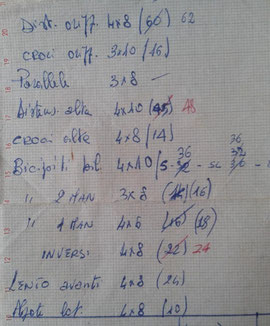 Dist. orizz. 4x8 (60) 62
croci orizz. 3x10 (16)
Parallele 3x8 —
Distens. alta 4x10 (45) 48
croci alte 4x8 (14)
36 36
Bicipiti bil. 4x10 (5- - sc
" 2 MAN 3x8 (16)
" 1 MAN 4x6 (16) (18)
INVERSI 4x8 (22) 24
LENTO avanti 4x8 (24)
Alzate lat. 4x8 (10)